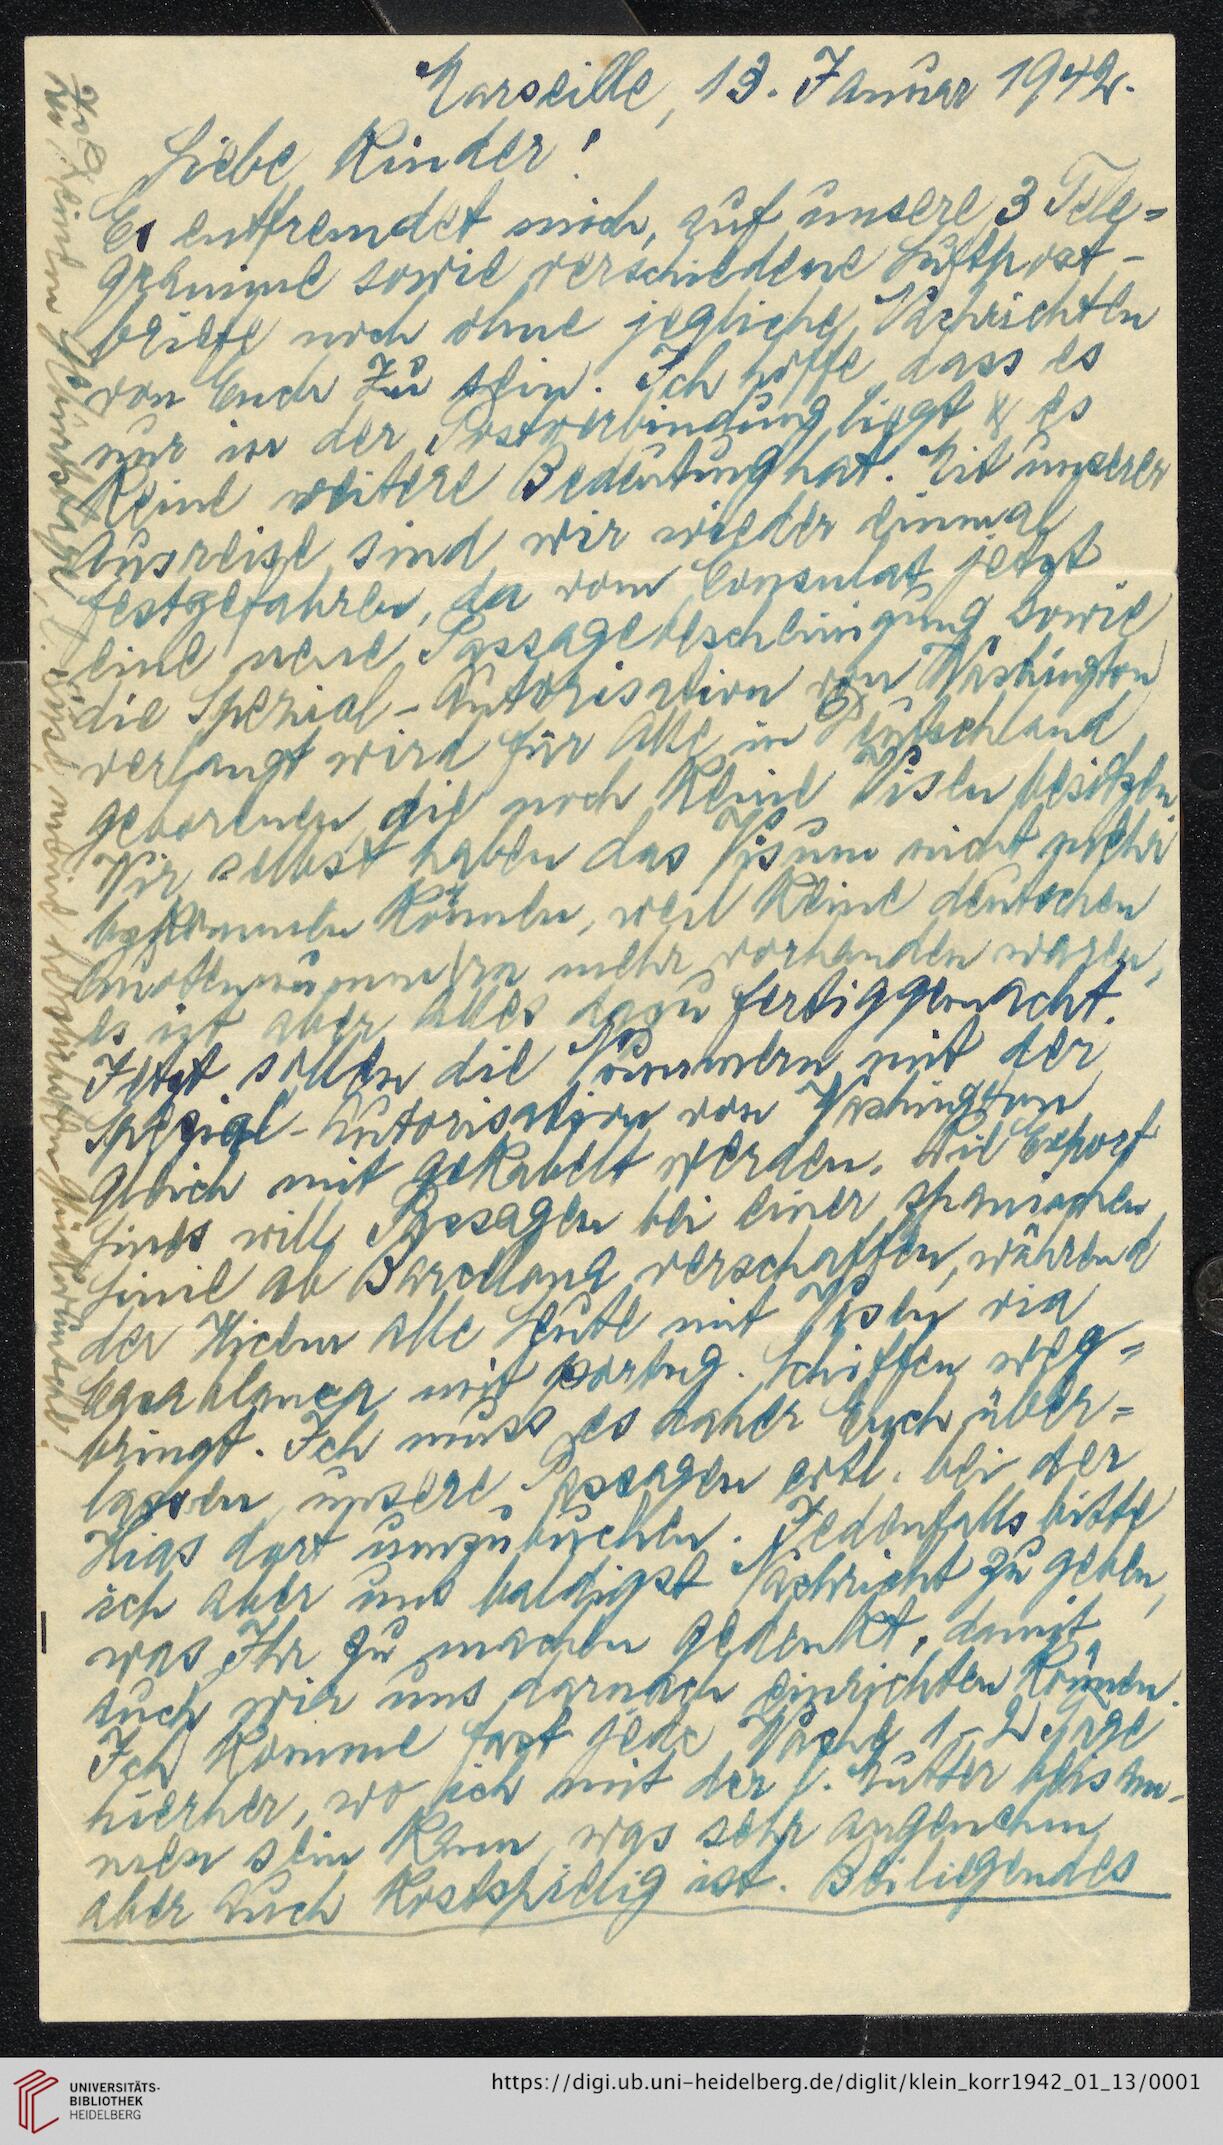 Marseille, 13. Januar 1942.
Liebe Kinder!
Es entfremdet mich, auf unsere 3 Tele=
gramme sowie verschiedene Luftpost-
briefe noch ohne jegliche Nachrichten
von Euch zu sein. Ich hoffe dass es
nur in der Postverbindung liegt & es
keine weitere Bedeutung hat. Mit unserer
Ausreise sind wir wieder einmal
festgefahren, da vom Consulat jetzt
eine neue Passagebescheinigung sowie
die Spezial-Autorisation von Washington
verlangt wird für Alle in Deutschland
geborenen die noch keine Visen besitzen
Wir selbst haben das Visum nicht mehr
bekommen können, weil keine deutschen
Quotennummern mehr vorhanden waren,
es ist aber alles dazu fertiggemacht.
Jetzt sollen die Nummern mit der
Spezial-Autorisation von Washington
gleich mit gekabelt werden. Die Export
Lines will Passagen bei einer spanischen
Linie ab Barcelona verschaffen, während
der Hicem alle Leute mit Visen via
Casablanca mit portug. Schiffen weg=
bringt. Ich muss es daher Euch über=
lassen unsere Passagen evtl. bei der
Hias dort umzubuchen. Jedenfalls bitte
ich aber uns baldigst Nachricht zu geben,
was Ihr zu machen gedenkt, damit
auch wir uns darnach einrichten können.
Ich komme fast jede Woche 1-2 Tage
hierher, wo ich mit der l. Mutter beisam-
men sein kann was sehr angenehm
aber auch kostspielig ist. Beiliegendes
Zu Deinem Geburtstage, l. meine herzlichsten Glückwünsche!
UNIVERSITÄTS-
BIBLIOTHEK
HEIDELBERG
https://digi.ub.uni-heidelberg.de/diglit/klein_korr1942_01_13/0001